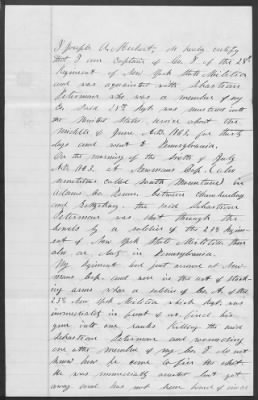 I Joseph A. do hereby certify
that I am Captain of Co. F. of the 28th
Regiment of New York State Militia
and was acquainted with Sebastian
who was a member of my
Co. Said 28th Regt. was mustered into
the United States service about the
middle of June A.D. 1863 for thirty
days and went to Pennsylvania.
On the morning of the fourth of July
A.D. 1863 at Newmans Gap (also
sometimes called South Mountain) in
Adams Co. Penna. between Chambersburg
and Gettysburg, the said Sebastian
was shot through the
bowels by a soldier of the 23d Regim-
ent of New York State Militia then
also on duty in Pennsylvania.
My Regiment had just arrived at New-
mans Gap and were in the act of stack-
ing arms when a soldier of Co. A. of the
23d New York Militia which Regt. was
immediately in front of us fired his
gun into our ranks killing the said
Sebastian and wounding
one other member of my Co. I do not
know how he came to fire the shot.
He was immediately arrested but got
away and has not been heard of since